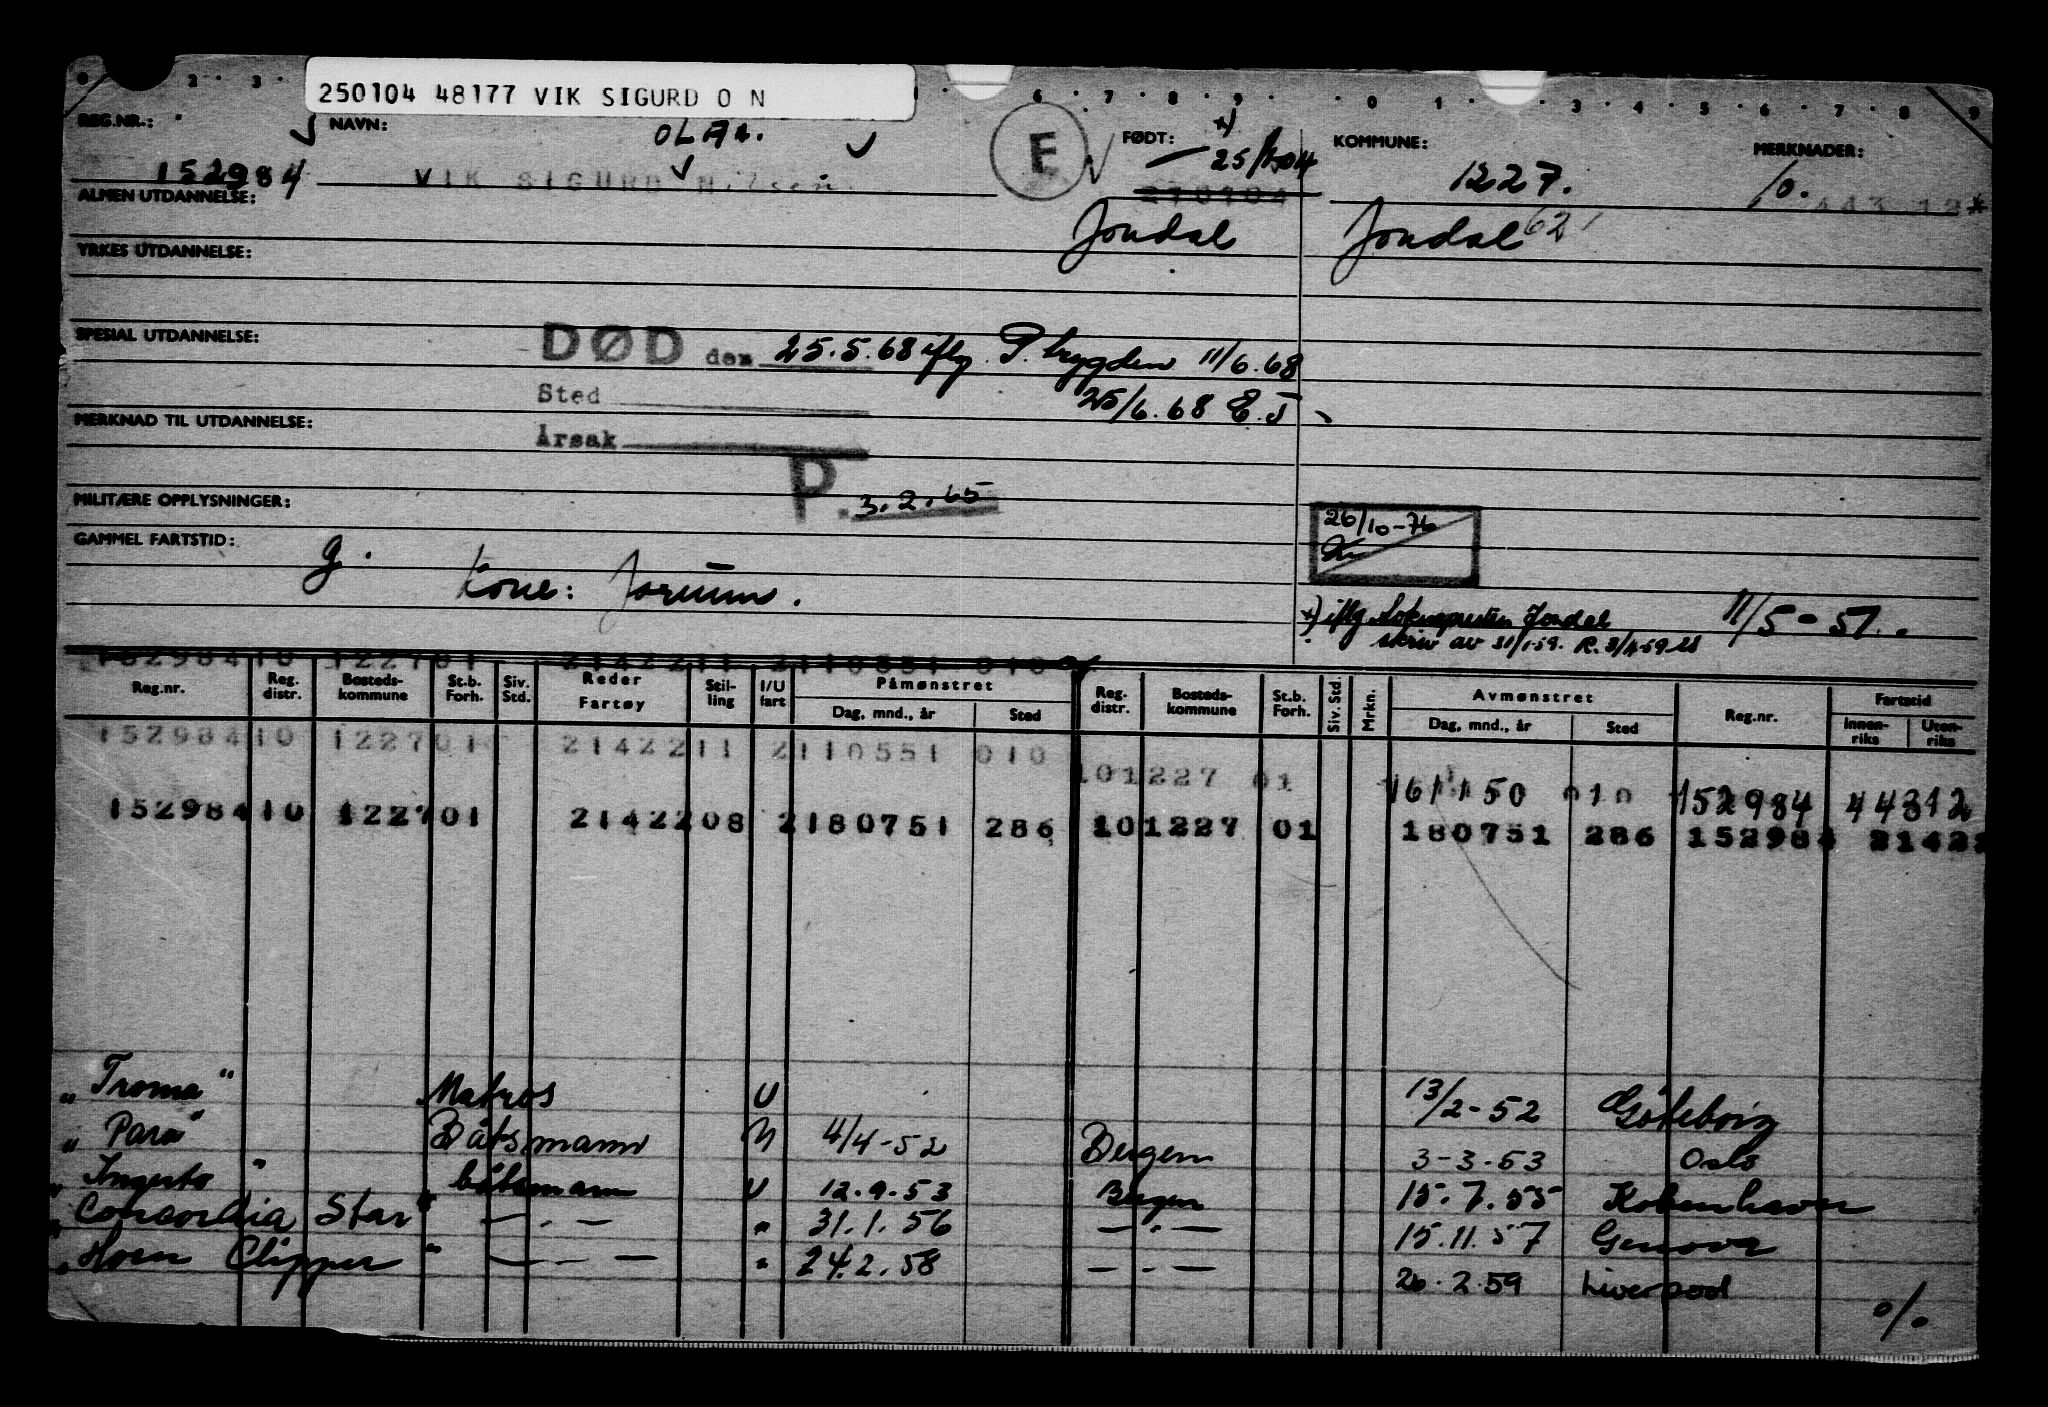 0 2 · 3 · 6 · 7 · 8 · 9 · 0 1 · 3 · 4 · 5 · 6 · 7 · 8 9
250104 48177 VIK SIGURD O N
REG.NR.: NAVN: OLAI. E FØDT: *) KOMMUNE: MERKNADER:
152984 VIK SIGURD Nilsen 25/1.04 1227. /0.
270104 443 12*
ALMEN UTDANNELSE: Jondal Jondal 62
YRKES UTDANNELSE:
SPESIAL UTDANNELSE: DØD den 25.5.68 iflg. P. trygden 11/6.68
Sted 25/6.68 E.J
MERKNAD TIL UTDANNELSE: Årsak
P. 3.2.65
MILITÆRE OPPLYSNINGER: 26/10-76
GAMMEL FARTSTID: g.
Kone: Jorunn.
*) iflg Soknepresten Jondal 11/5-51.
skriv av 31/1-59. R. 3/4-59
152984 10 122701 2142211 2110551 010
Reg.nr. Reg. distr. Bosteds-kommune St.b. Forh. Siv. Std. Reder Fartøy Stil-ling I/U fart Påmønstret Dag, mnd., år Sted Reg. distr. Bosteds-kommune St.b. Forh. Siv. Std. Mrkn. Avmønstret Dag, mnd., år Sted Reg.nr. Fartstid Innen-riks Uten-riks
152984 10 122701 2142211 2110551 010 101227 01 161150 010 152984 44312
152984 10 122701 2142208 2180751 286 101227 01 180751 286 152984 2142
"Troma" Matros U 13/2-52 Göteborg
"Para" Båtsmann U 4/4-52 Bergen 3-3-53 Oslo
"Ingerto" båtsmann U 12.9.53 Bergen 15.7.55 København
"Concordia Star" — . — " 31.1.56 — . — 15.11.57 Genova
"Hoen Clipper" — . — " 24.2.58 — . — 26.2.59 Liverpool